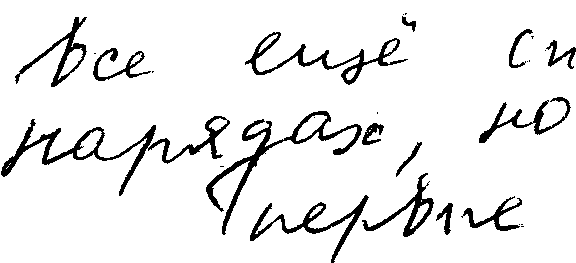 все ещё сп
нарядах, но
первые